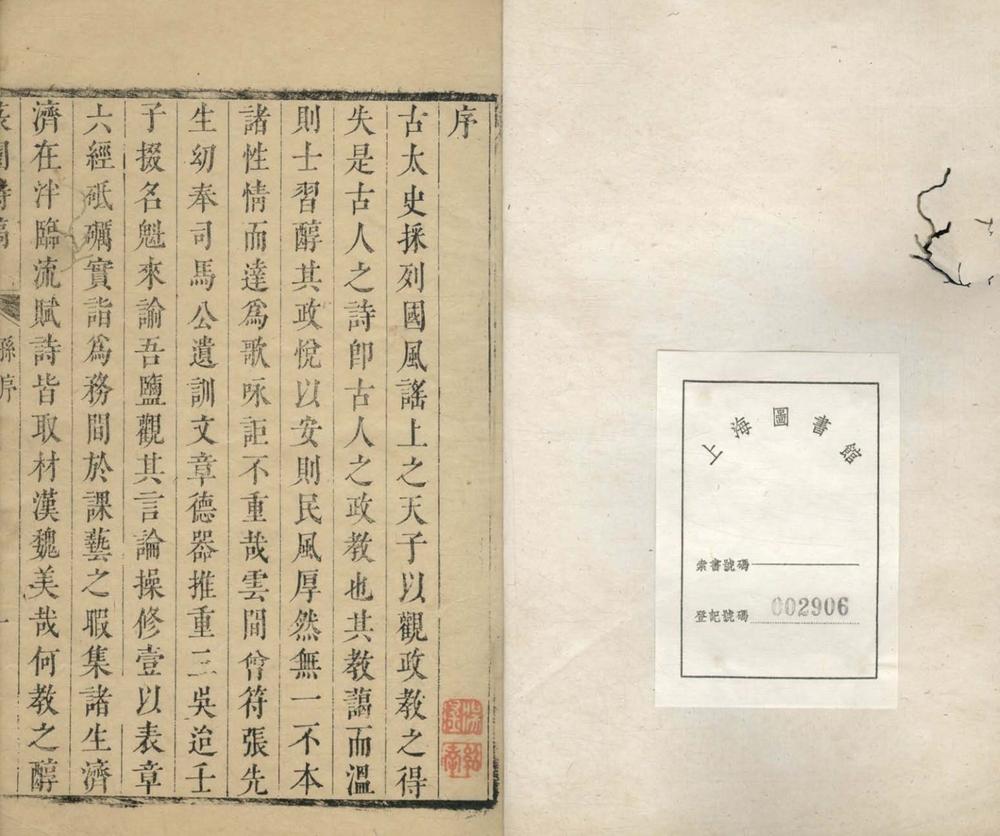 上海圖書館
索書號碼
登記號碼 002906
序
古太史採列國風謠上之天子以觀政教之得
失是古人之詩卽古人之政教也其教藹而溫
則士習醇其政悅以安則民風厚然無一不本
諸性情而達爲歌咏詎不重哉雲間曾符張先
生幼奉司馬公遺訓文章德器推重三吳迨壬
子掇名魁來諭吾鹽觀其言論操修壹以表章
六經砥礪實詣爲務間於課藝之暇集諸生濟
濟在泮臨流賦詩皆取材漢魏美哉何教之醇
孫序
一